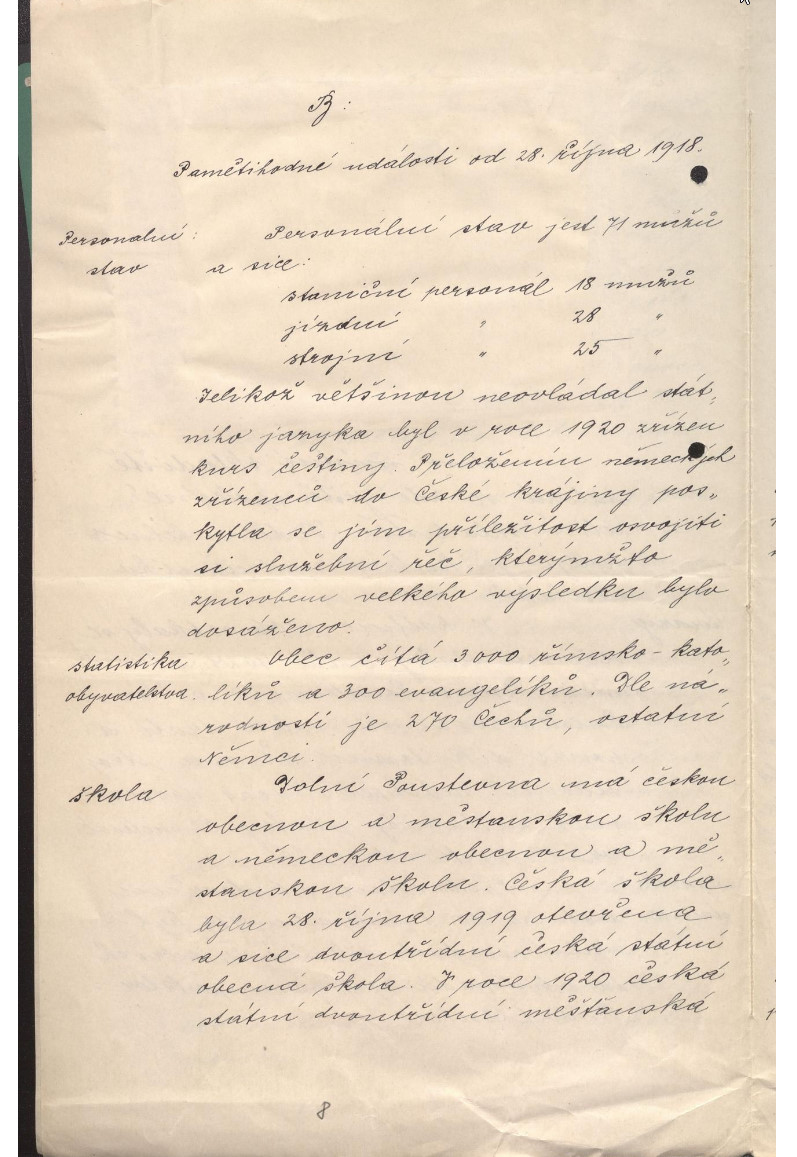 B:
Pamětihodné události od 28. října 1918.
Personalní: Personální stav jest 71 mužů
stav a sice:
staniční personál 18 mužů
jízdní " 28 "
strojní " 25 "
Jelikož většinou neovládal stát„
ního jazyka byl v roce 1920 zřízen
kurs češtiny. Přeložením německých
zřízenců do České krájiny pos„
kytla se jim příležitost osvojiti
si služební řeč, kterýmžto
způsobem velkého výsledku bylo
dosáženo.
statistika Obec čítá 3000 římsko-kato„
obyvatelstva. líků a 300 evangelíků. Dle ná„
rodnosti je 270 Čechů, ostatní
Němci.
škola Dolní Poustevna má českou
obecnou a měšťanskou školu
a německou obecnou a mě„
stanskou školu. Česká škola
byla 28. října 1919 otevřena
a sice dvoutřídní česká státní
obecná škola. V roce 1920 česká
státní dvoutřídní měšťanská
8